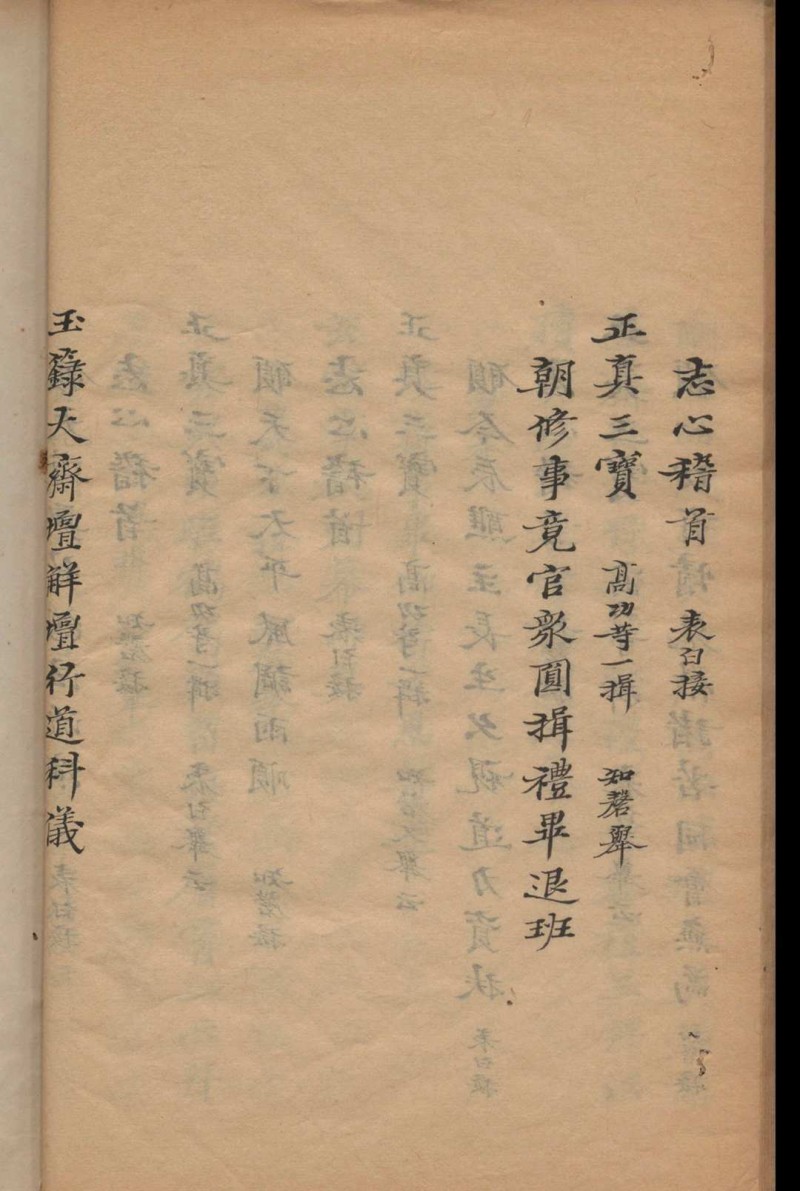 志心稽首 表白接
正真三寶 高功等一揖 知磬舉
朝修事竟官衆圓揖禮畢退班
玉籙大齋壇解壇行道科儀